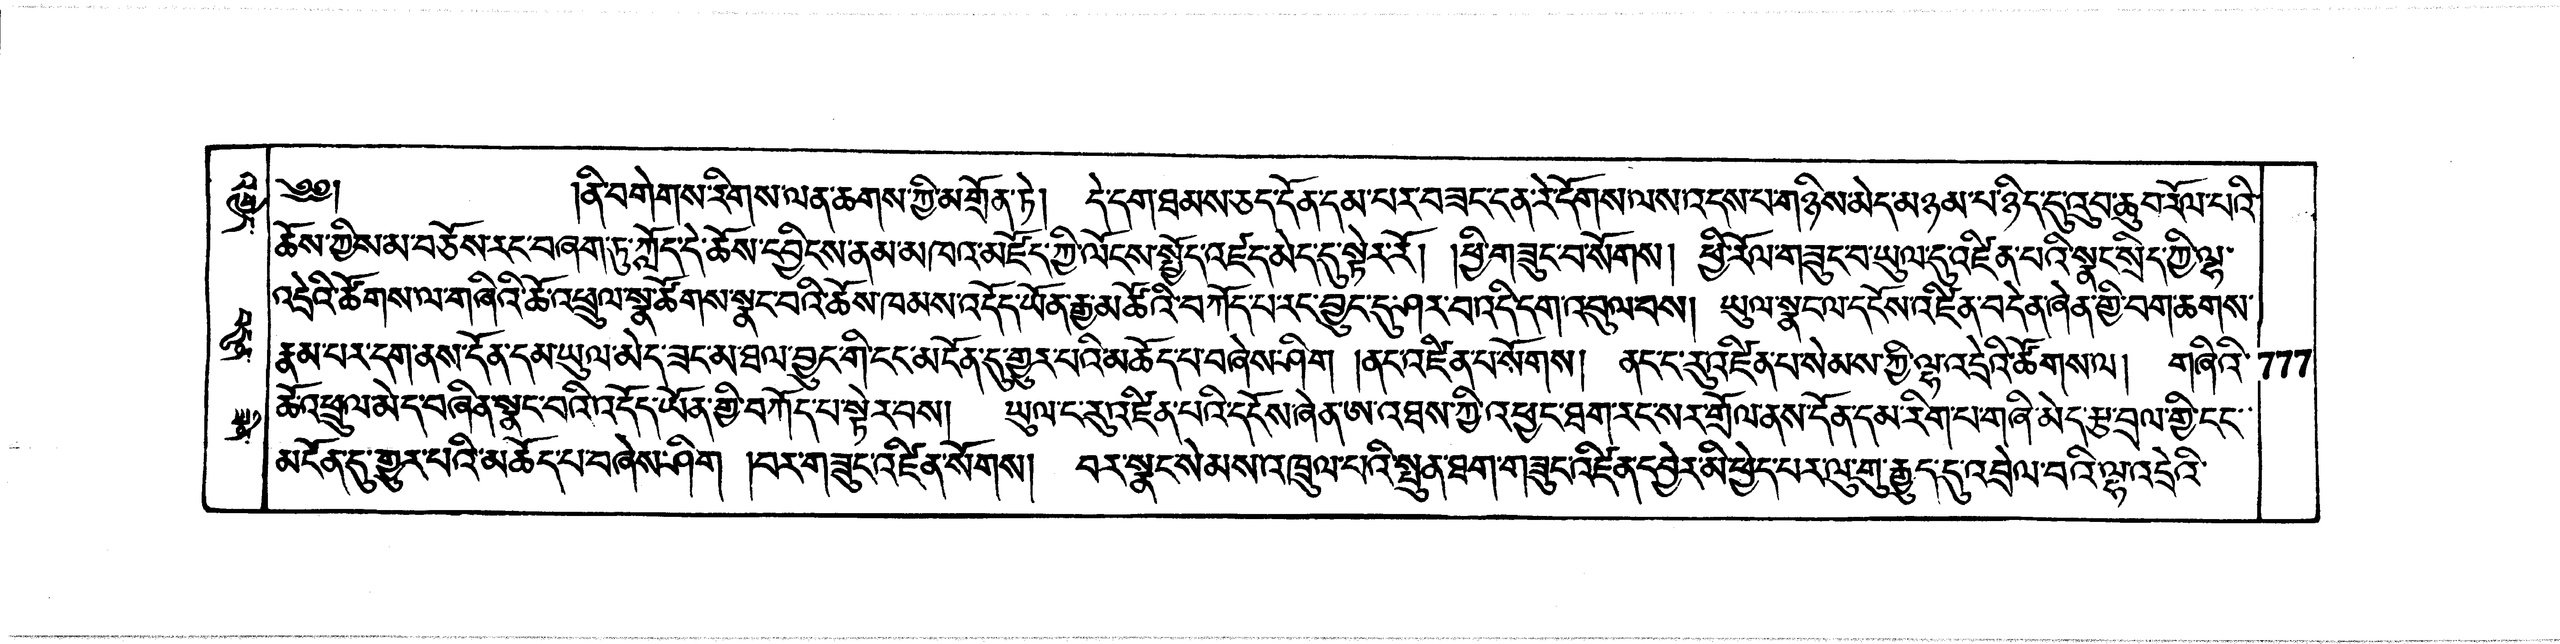 ༄༅། །ནི་བགེགས་རིགས་ལན་ཆགས་ཀྱི་མགྲོན་ཏེ། དེ་དག་ཐམས་ཅད་དོན་དམ་པར་བཟང་ངན་རེ་དོགས་ལས་འདས་པ་གཉིས་མེད་མཉམ་པ་ཉིད་དུ་འུབ་ཆུབ་རོལ་པའི་
ཆོས་ཀྱིས་མ་བཅོས་རང་བཞག་ཏུ་ཀློད་དེ་ཆོས་དབྱིངས་ནམ་མཁའ་མཛོད་ཀྱི་ལོངས་སྤྱོད་འཛད་མེད་དུ་སྟེར་རོ། །ཕྱི་གཟུང་བ་སོགས། ཕྱི་རོལ་གཟུང་བ་ཡུལ་དུ་འཛིན་པའི་སྣང་སྲིད་ཀྱི་ལྷ་
འདྲེའི་ཚོགས་ལ་གཞིའི་ཆོ་འཕྲུལ་སྣ་ཚོགས་སྣང་བའི་ཆོས་ཁམས་འདོད་ཡོན་རྒྱ་མཚོའི་བཀོད་པ་རང་བྱུང་དུ་ཤར་བ་འདི་དག་འབུལ་བས། ཡུལ་སྣང་ལ་དངོས་འཛིན་བདེན་ཞེན་གྱི་བག་ཆགས་
རྣམ་པར་དག་ནས་དོན་དམ་ཡུལ་མེད་ཟང་མ་ཐལ་བྱུང་གི་ངང་མངོན་དུ་གྱུར་པའི་མཆོད་པ་བཞེས་ཤིག །ནང་འཛིན་པ་སོགས། ནང་ང་རུ་འཛིན་པ་སེམས་ཀྱི་ལྷ་འདྲེའི་ཚོགས་ལ། གཞིའི་
ཆོ་འཕྲུལ་མེད་བཞིན་སྣང་བའི་འདོད་ཡོན་གྱི་བཀོད་པ་སྟེར་བས། ཡུལ་ང་རུ་འཛིན་པའི་དངོས་ཞེན་ཨ་འཐས་ཀྱི་འཕྱང་ཐག་རང་སར་གྲོལ་ནས་དོན་དམ་རིག་པ་གཞི་མེད་རྩ་བྲལ་གྱི་ངང་
མངོན་དུ་གྱུར་པའི་མཆོད་པ་བཞེས་ཤིག །བར་གཟུང་འཛིན་སོགས། བར་སྣང་སེམས་འཁྲུལ་པའི་སྤུན་ཐག་གཟུང་འཛིན་དབྱེར་མི་ཕྱེད་པར་ལུ་གུ་རྒྱུད་དུ་འབྲེལ་བའི་ལྷ་འདྲེའི་
777